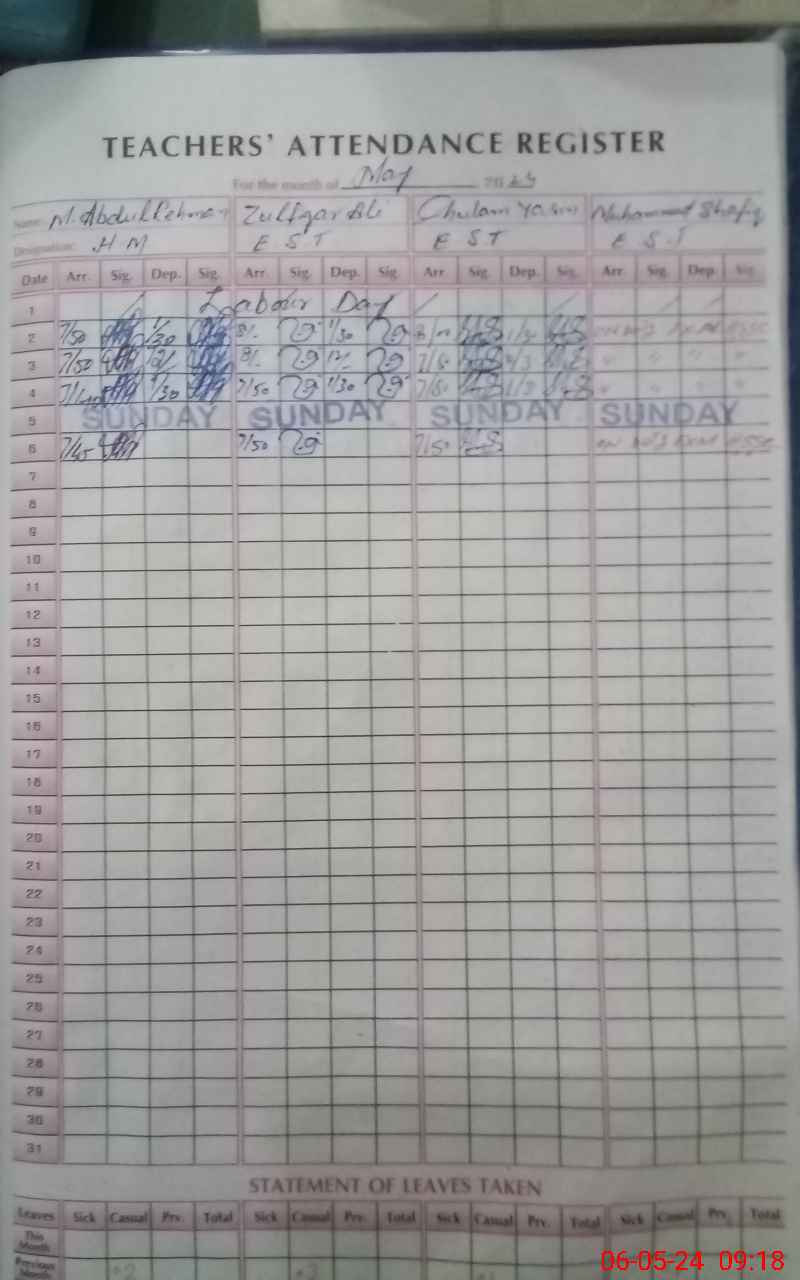 TEACHERS' ATTENDANCE REGISTER
For the month of May 2024
Name: M. Abdul Rehman Zulfqar Ali Ghulam Yasin Muhammad Shafiq
Designation: H M E S T E S T E S T
Date Arr. Sig. Dep. Sig. Arr. Sig. Dep. Sig Arr Sig. Dep. Sig. Arr Sig. Dep. Sig.
1 Labour Day
2 7/50 1/30 8/- 1/30
3 7/50 12/- 8/- 12/-
4 7/40 1/30 7/50 1/30 7/50
5 SUNDAY SUNDAY SUNDAY SUNDAY
6 7/45 7/50 7/50
7
8
9
10
11
12
13
14
15
16
17
18
19
20
21
22
23
24
25
26
27
28
29
30
31
STATEMENT OF LEAVES TAKEN
Leaves Sick Casual Prv. Total Sick Casual Prv. Total Sick Casual Prv. Total Sick Casual Prv. Total
This Month
Previous Month
06-05-24 09:18